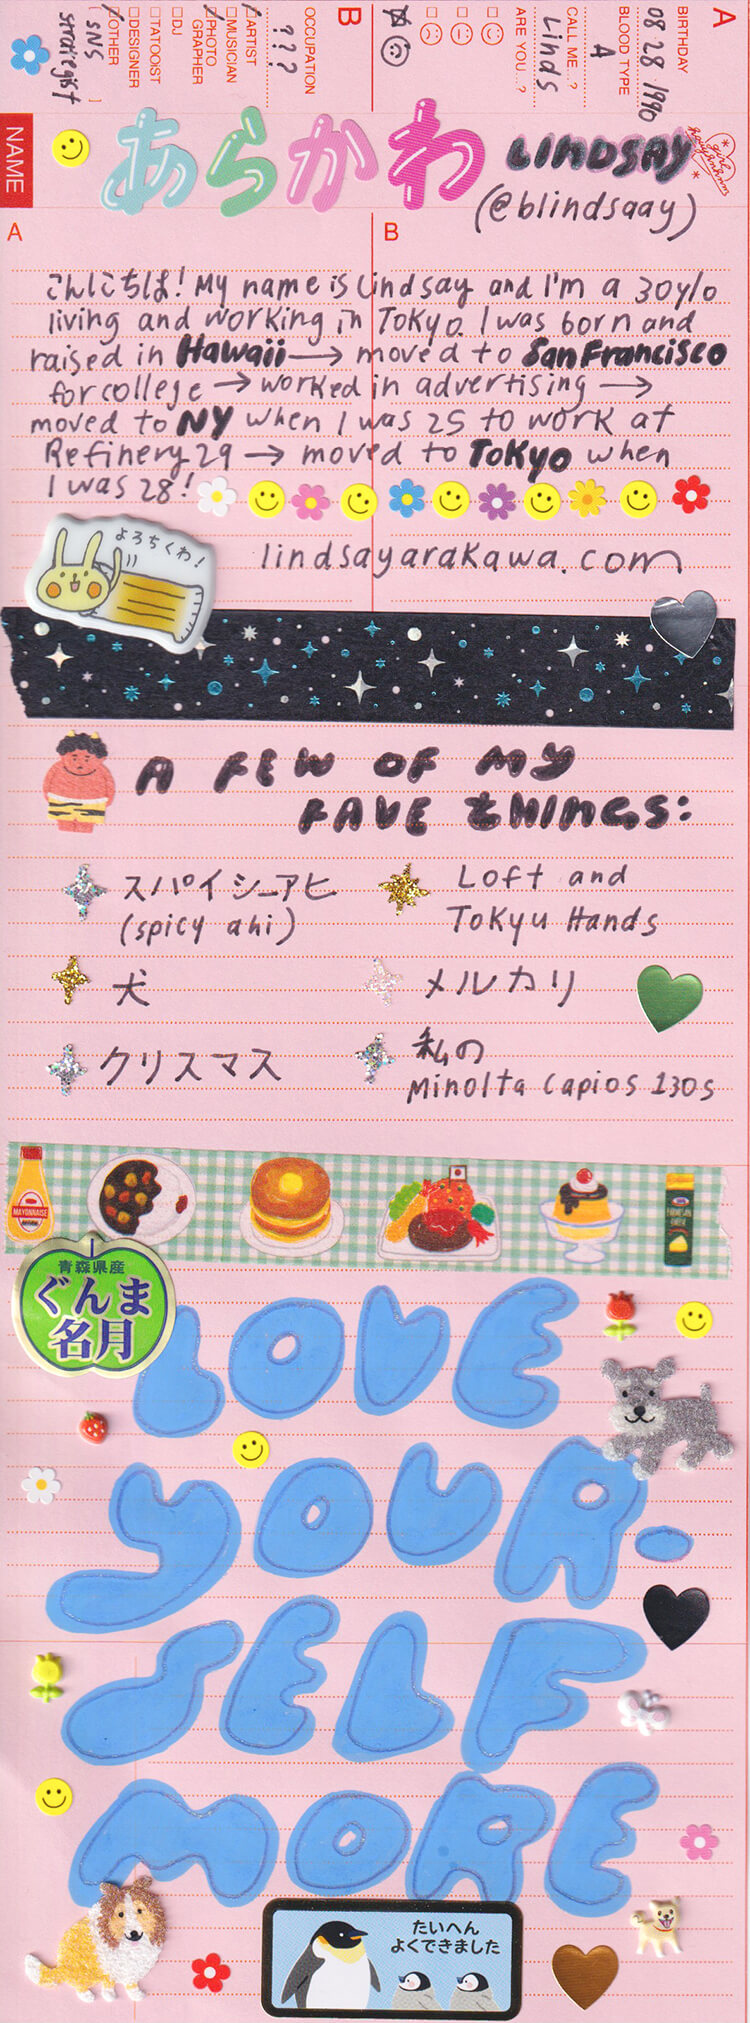 A
BIRTHDAY
08 28 1990
BLOOD TYPE
A
CALL ME..?
Linds
ARE YOU..?
B
OCCUPATION
???
ARTIST
MUSICIAN
PHOTO
GRAPHER
DJ
TATOOiST
DESIGNER
OTHER
[ SNS
strategist ]
NAME
あらかわ LINDSAY
(@blindsaay)
A
B
こんにちは! My name is Lindsay and I'm a 30y/o
living and working in Tokyo. I was born and
raised in Hawaii → moved to San Francisco
for college → worked in advertising →
moved to NY when I was 25 to work at
Refinery29 → moved to Tokyo when
I was 28!
よろちくわ!
lindsayarakawa.com
A FEW OF MY
FAVE THINGS:
スパイシーアヒ
(spicy ahi)
Loft and
Tokyu Hands
犬
メルカリ
クリスマス
私の
Minolta Capios 130s
MAYONNAISE
PARMESAN
CHEESE
青森県産
ぐんま
名月
LOVE
YOUR-
SELF
MORE
たいへん
よくできました